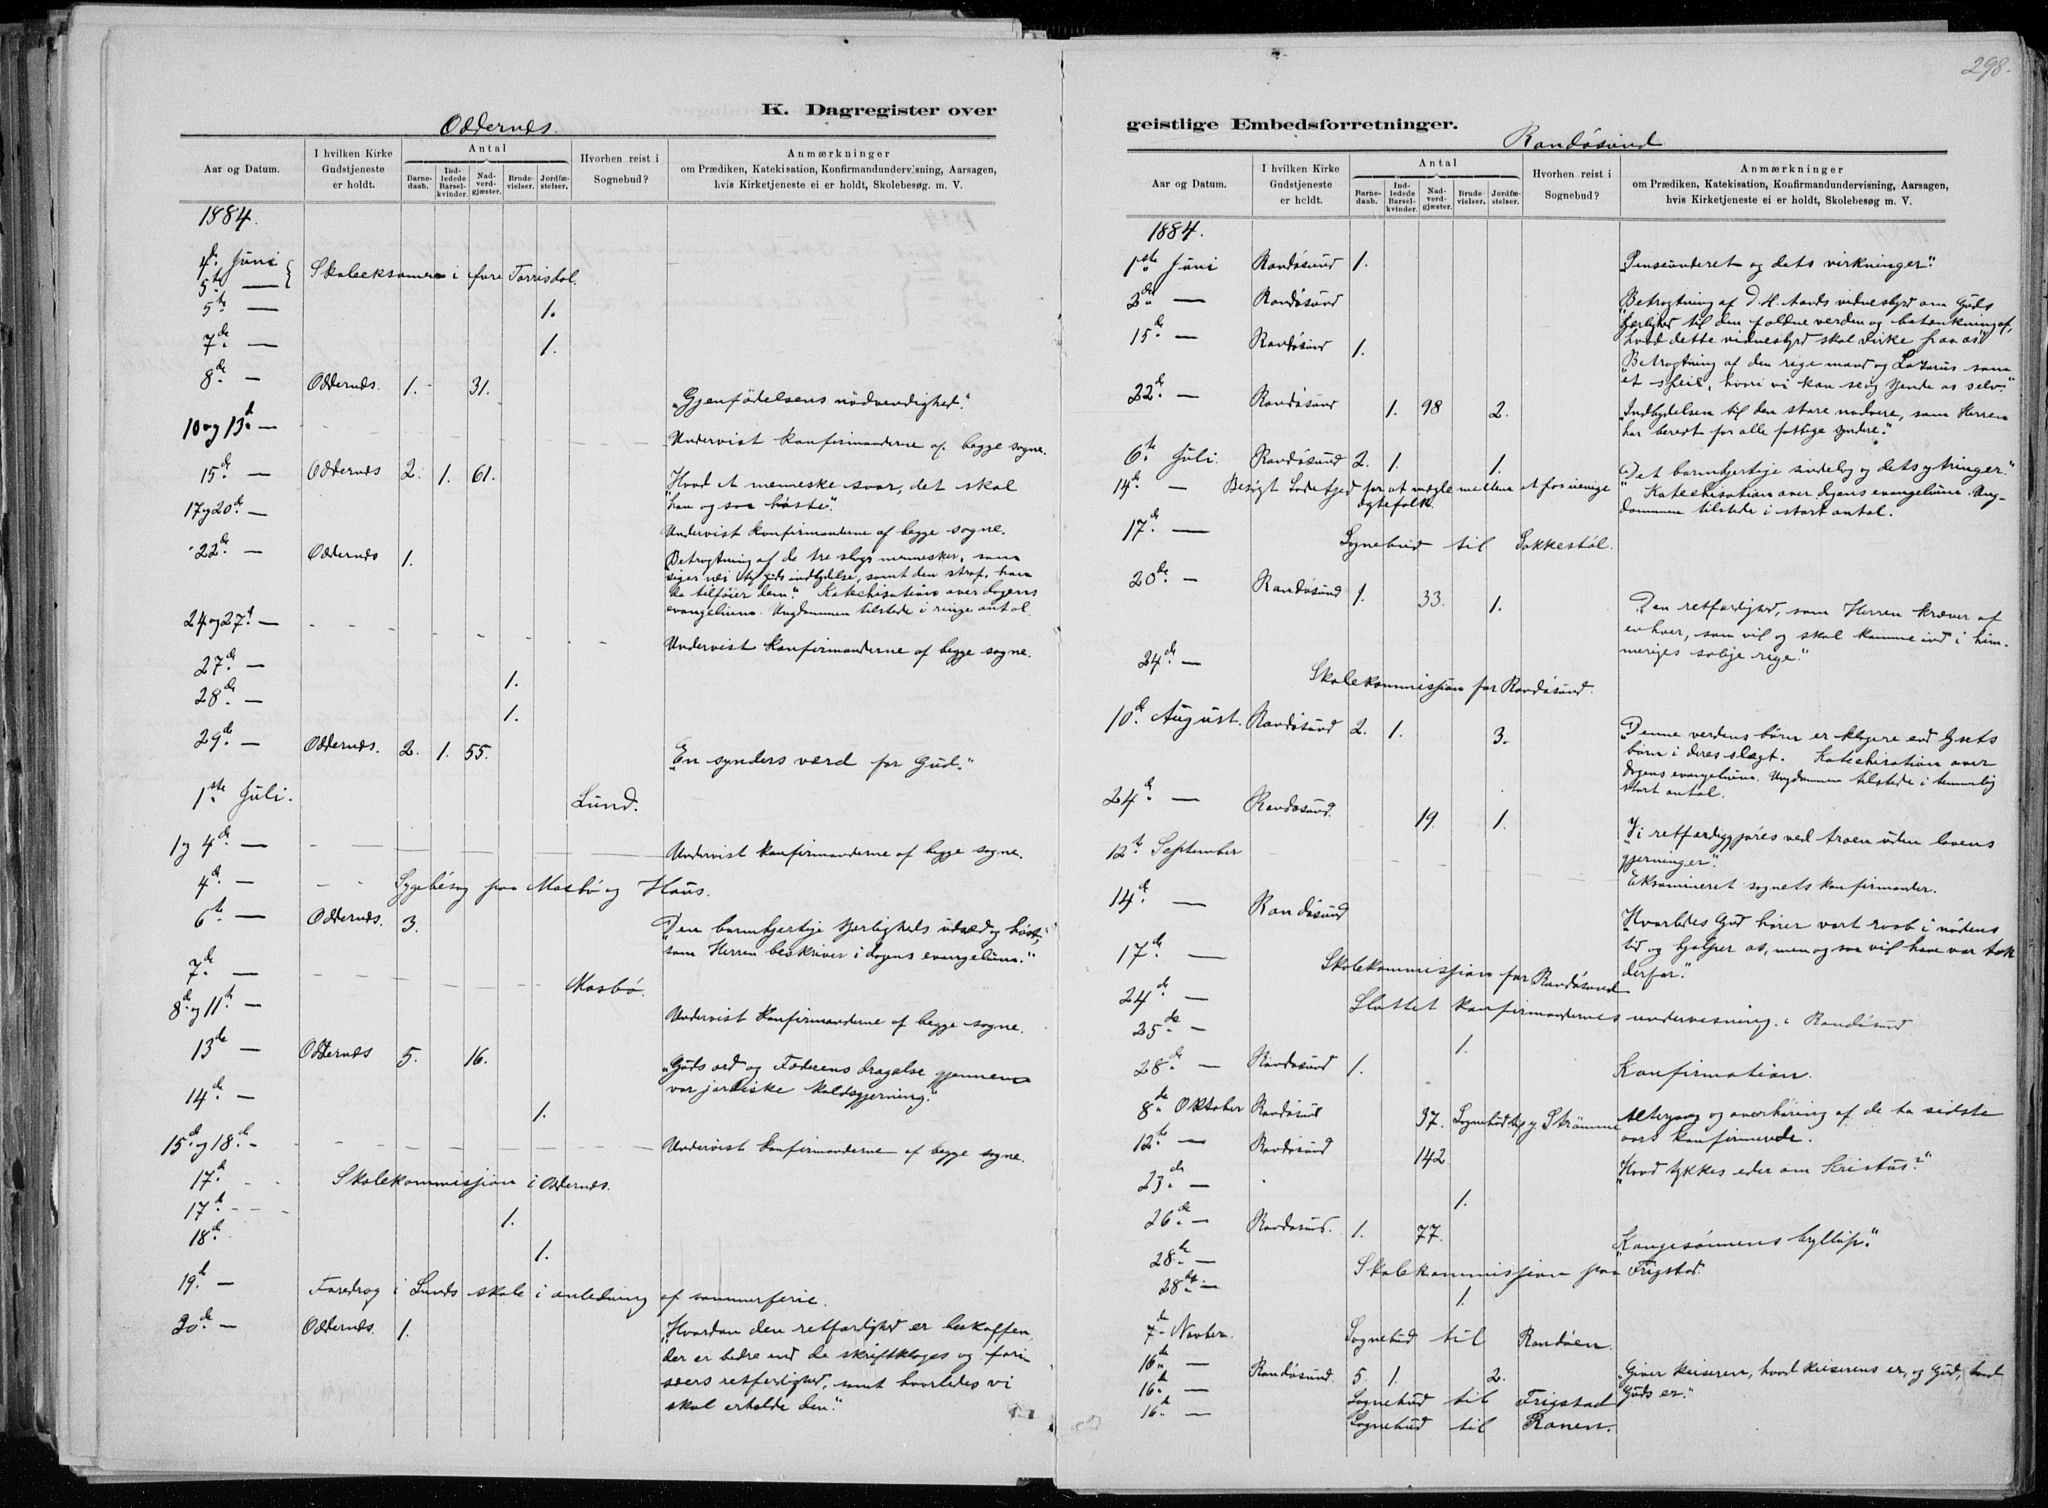 298.
K. Dagregister over
Oddernes.
Antal
Aar og Datum.
I hvilken Kirke
Gudstjeneste
er holdt.
Barne-
daab.
Ind-
ledede
Barsel-
kvinder.
Nad-
verd-
gjæster.
Brude-
vielser.
Jordfæ-
stelser.
Hvorhen reist i
Sognebud?
Anmærkninger
om Prædiken, Katekisation, Konfirmandundervisning, Aarsagen,
hvis Kirketjeneste ei er holdt, Skolebesøg m. V.
1884.
4de Juni
5te — Skoleeksamen i øvre Torrisdal.
5te — 1.
7de — 1.
8de — Oddernes. 1. 31.
"Gjenfødelsens nødvendighed."
10 og 13de — Undervist konfirmanderne af begge sogne.
15de — Oddernes 2. 1. 61. "Hvad et menneske saar, det skal
han og saa høste."
17 og 20de —
Undervist konfirmanderne af begge sogne.
22de — Oddernes 1. "Betragtning af de tre slags mennesker, som
siger nei til Guds indbydelse, samt den straf, han
da tilføier dem." Katechisation over dagens
evangelium. Ungdommen tilstede i ringe antal.
24 og 27de — Undervist konfirmanderne af begge sogne.
27de — 1.
28de — 1.
29de — Oddernes. 2. 1. 55. "En synders værd for Gud."
1ste Juli. Lund.
1 og 4de — Undervist konfirmanderne af begge sogne.
4de — Sygebesøg paa Mosbø og Haus.
6te — Oddernes. 3. "Den barmhjertige kjærligheds udsæd og høst,
som Herren beskriver i dagens evangelium."
7de — Mosbø.
8de og 11te — Undervist konfirmanderne af begge sogne.
13de — Oddernes 5. 16. "Guds ord og Faderens dragelse gjennem
vor jordiske kaldsgjerning."
14de — 1.
15de og 18de — Undervist konfirmanderne af begge sogne.
17de Skolekommissjon i Oddernes.
17de 1.
18de 1.
19de — Foredrag i Lunds skole i anledning af sommerferie.
20de — Oddernes. 1. "Hvordan den retfærdighed er beskaffen,
der er bedre end de skriftkloges og fari-
sæers retfærdighed, samt hvorledes vi
skal erholde den."
geistlige Embedsforretninger.
Randøsund
Antal
Aar og Datum.
I hvilken Kirke
Gudstjeneste
er holdt.
Barne-
daab.
Ind-
ledede
Barsel-
kvinder.
Nad-
verd-
gjæster.
Brude-
vielser.
Jordfæ-
stelser.
Hvorhen reist i
Sognebud?
Anmærkninger
om Prædiken, Katekisation, Konfirmandundervisning, Aarsagen,
hvis Kirketjeneste ei er holdt, Skolebesøg m. V.
1884.
1ste Juni Randøsund 1. "Pinseunderet og dets virkninger."
2de — Randøsund "Betragtning af d. H. Aands vidnesbyrd om Guds
kjærlighed til den faldne verden og betænkning af,
hvad dette vidnesbyrd skal virke paa os"
15de — Randøsund 1.
"Betragtning af den rige mand og Lazarus som
et speil, hvori vi kan se og kjende os selv."
22de — Randøsund 1. 98 2. "Indbydelsen til den store nadvere, som Herren
har beredt for alle fattige syndere."
6te Juli. Randøsund 2. 1. 1. "Det barmhjertige sindelag og dets ytringer."
14de — Besøgt Dødefjed for at mægle mellem et forenige
ægtefolk.
Katechisation over dagens evangelium. Ung-
dommen tilstede i stort antal.
17de — Sognebud til Dokkestøl.
20de — Randøsund 1. 33. 1. "Den retfærdighed, som Herren kræver af
enhver, som vil og skal komme ind i him-
meriges salige rige."
24de — Skolekommissjon for Randøsund.
10de August. Randøsund 2. 1. 3. "Denne verdens børn er klogere end lysets
børn i deres slægt. Katechisation over
dagens evangelium. Ungdommen tilstede i temmelig
stort antal.
24de — Randøsund. 19. 1. "Vi retfærdiggjøres ved troen uden lovens
gjerninger."
12te September Eksamineret sognets konfirmander.
14de — Randøsund "Hvorledes Gud hører vort raab i nødens
tid og hjælper os, men og saa vil have vor tak
derfor."
17de — Skolekommissjon for Randøsund
24de — Sluttet konfirmandernes undervisning i Randøsund
25de — 1.
28de — Randøsund 1. Konfirmation.
8de Oktober Randøsund 37. Sognebud til Strømme Altergang og overhøring af de to sidste
aars konfirmerede.
12te — Randøsund 142 "Hvad tykkes eder om Kristus?"
23de — 1.
26de — Randøsund. 1. 77. "Kongesønnens bryllup."
28de — Skolekommissjon paa Frigstad.
28de — 1.
7de Novber. Sognebud til Randøen.
16de — Randøsund. 5. 1. 2. "Giver keiseren, hvad keiserens er, og Gud, hvad
Guds er."
16de — Sognebud til Frigstad
16de — Sognebud til Ronen.